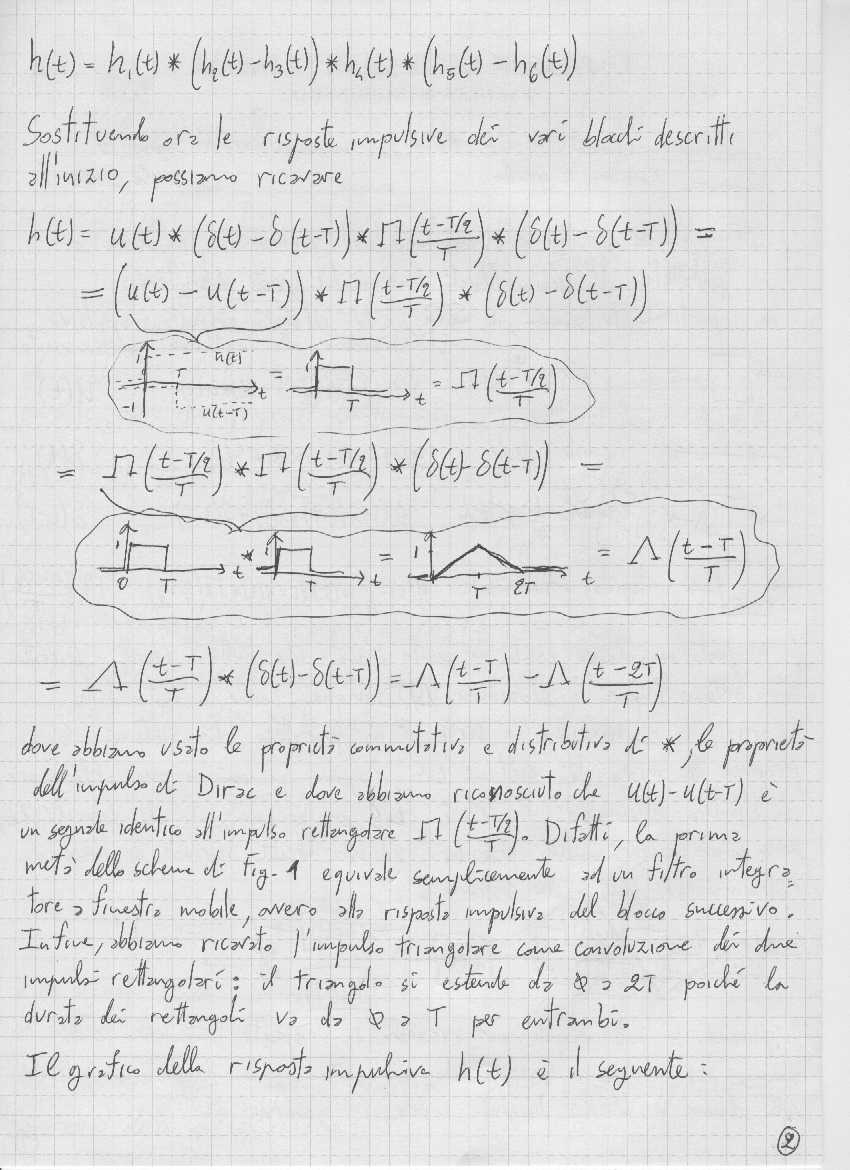 h(t) = h₁(t) * (h₂(t) - h₃(t)) * h₄(t) * (h₅(t) - h₆(t))
Sostituendo ora le risposte impulsive dei vari blocchi descritti
all'inizio, possiamo ricavare
h(t) = u(t) * (δ(t) - δ(t-T)) * Π((t-T/2)/T) * (δ(t) - δ(t-T)) =
= (u(t) - u(t-T)) * Π((t-T/2)/T) * (δ(t) - δ(t-T))
1 u(t) T t -1 u(t-T) = 1 T t = Π((t-T/2)/T)
= Π((t-T/2)/T) * Π((t-T/2)/T) * (δ(t) - δ(t-T)) =
1 0 T t * 1 T t = 1 T 2T t = Λ((t-T)/T)
= Λ((t-T)/T) * (δ(t) - δ(t-T)) = Λ((t-T)/T) - Λ((t-2T)/T)
dove abbiamo usato le proprietà commutativa e distributiva di *, le proprietà
dell'impulso di Dirac e dove abbiamo riconosciuto che u(t)-u(t-T) è
un segnale identico all'impulso rettangolare Π((t-T/2)/T). Difatti, la prima
metà dello schema di Fig. 1 equivale semplicemente ad un filtro integra=
tore a finestra mobile, ovvero alla risposta impulsiva del blocco successivo.
Infine, abbiamo ricavato l'impulso triangolare come convoluzione dei due
impulsi rettangolari: il triangolo si estende da 0 a 2T poiché la
durata dei rettangoli va da 0 a T per entrambi.
Il grafico della risposta impulsiva h(t) è il seguente:
2